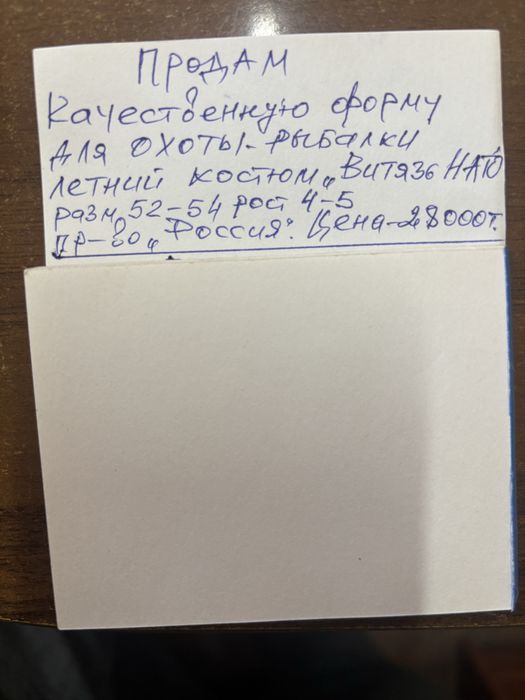 Продам
Качественную форму
для охоты-рыбалки
летний костюм „Витязь НАТО
разм. 52-54 рост 4-5
пр-во „Россия“. Цена-28000т.